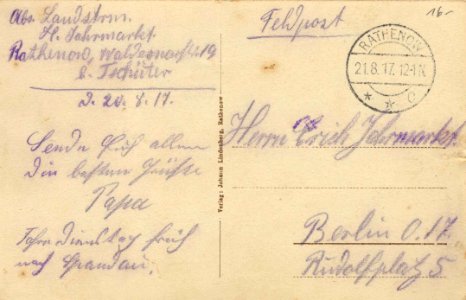 Abs. Landstrm.
H. Jehrmarkt.
Rathenow,
b. Tschüter
D. 20.8.17.
Sende Euch allen
die besten Grüsse
Papa
Fahre Dienstag früh
nach Spandau.
Verlag: Johann Lindenberg, Rathenow
Feldpost
16.-
RATHENOW
21.8.17. 12-1N.
* * c
Herrn Erich Jehrmarkt.
Berlin O.17.
Rudolfplatz 5